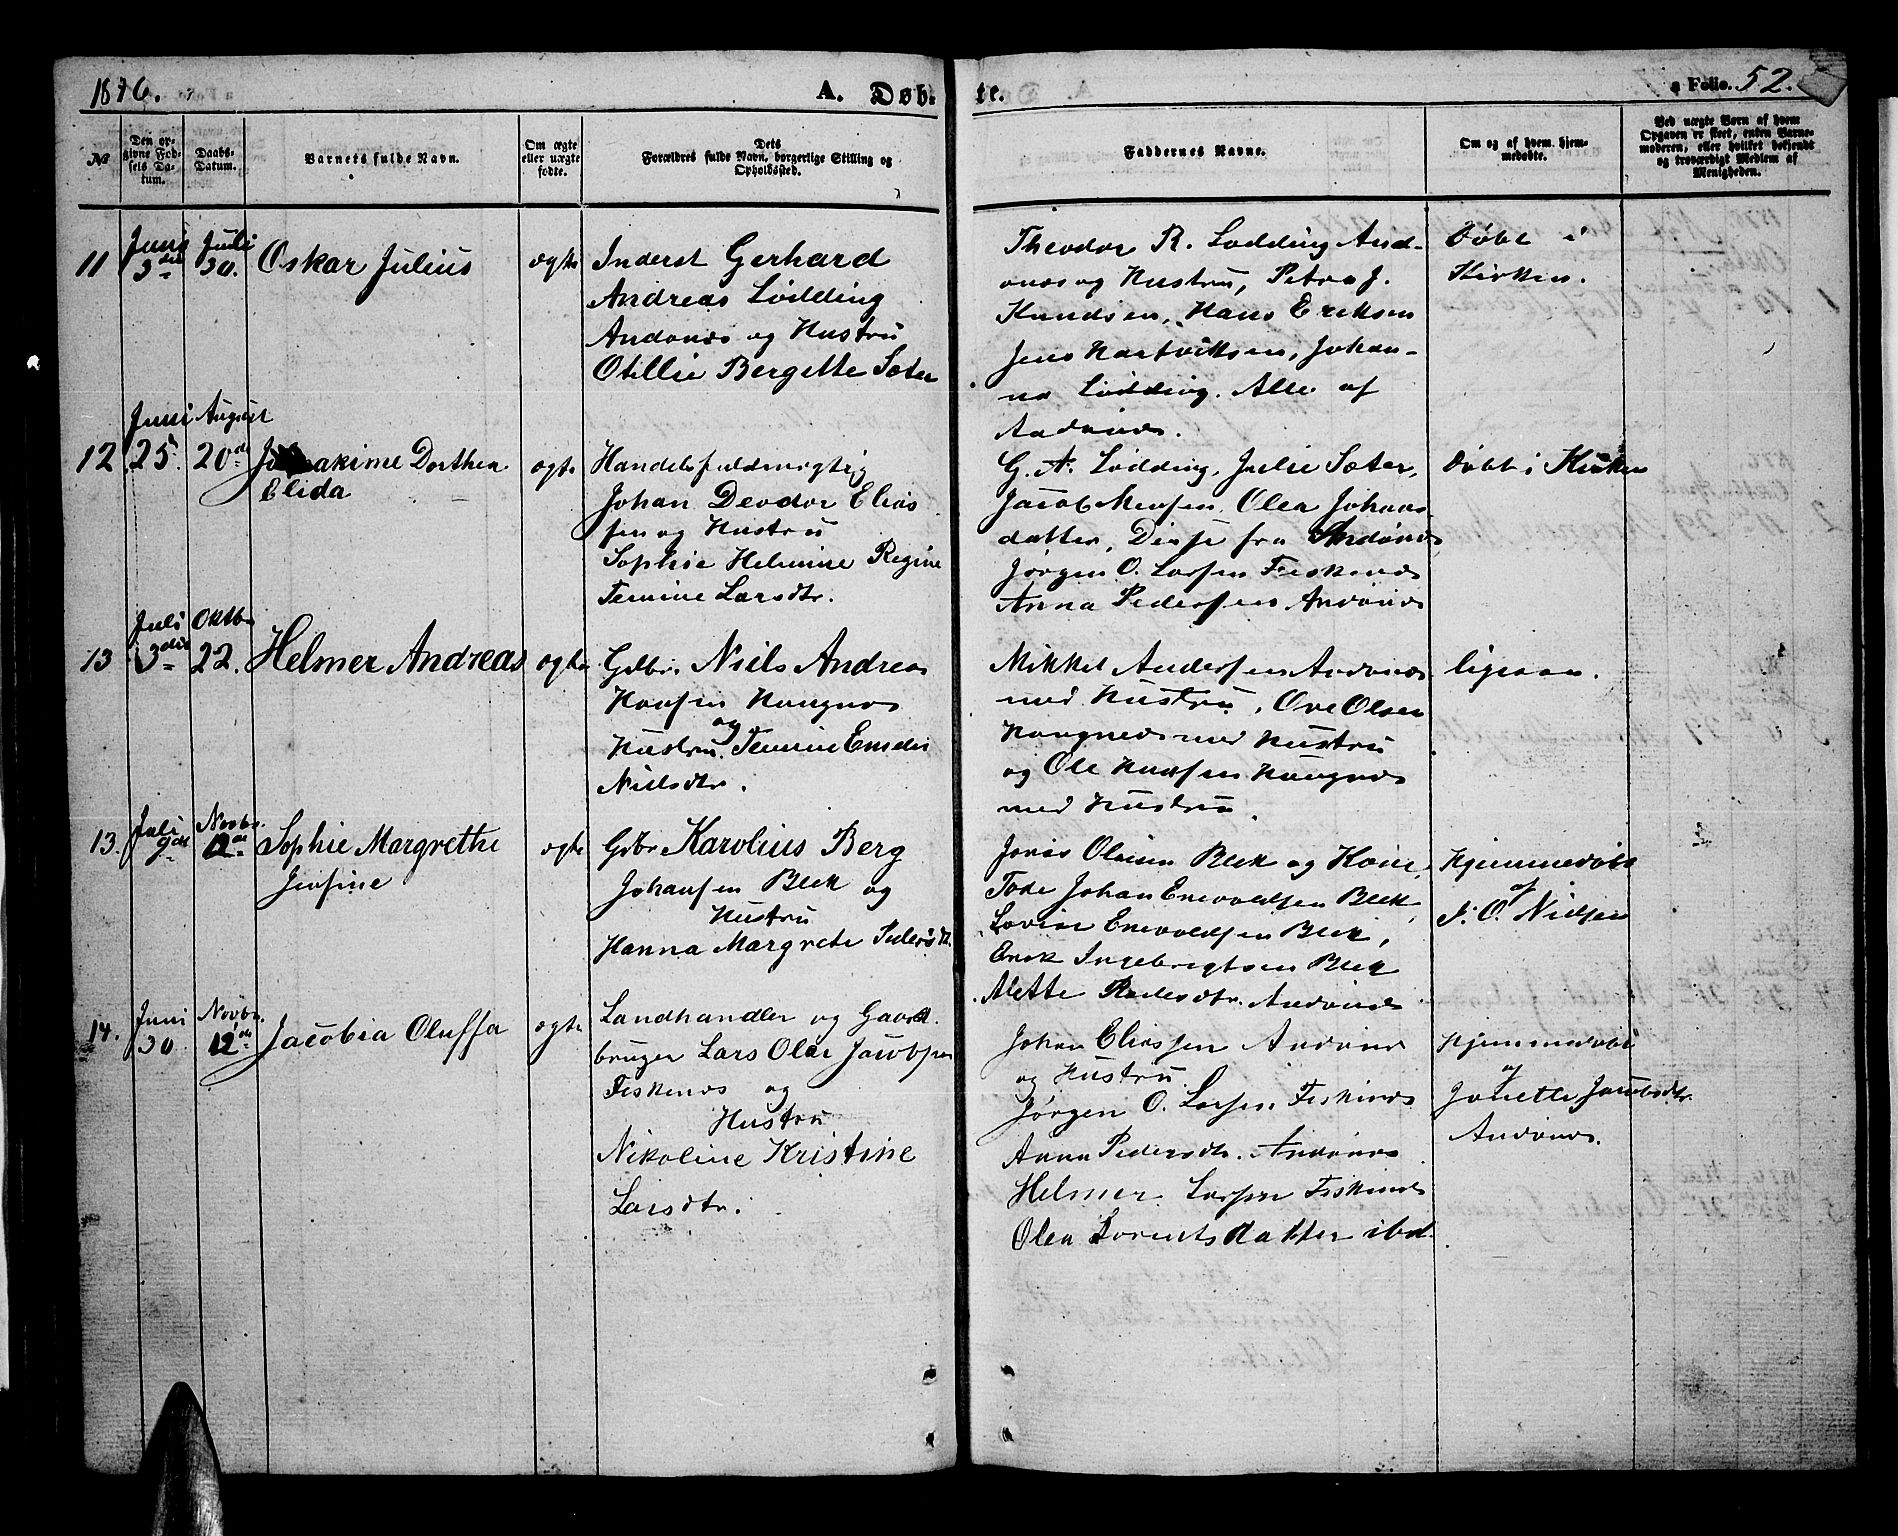 1876.
A. Døb-
te.
a Folio. 52.
№
Den opgivne Fødsels Datum.
Daabs-Datum.
Barnets fulde Navn.
Om ægte eller uægte fødte.
Dets Forældres fulde Navn, borgerlige Stilling og Opholdssted.
Faddernes Navne.
Om og af hvem hjemmedøbte.
Ved uægte Børn af hvem Opgaven er skeet, enden Barnemoderen, eller hvilket bekjendt og troværdigt Medlem af Menigheden.
11
Juni
Juli
30.
Oskar Julius
ægte
Inderst Gerhard
Andreas Lødding
Andønes og Hustru
Otillie Bergette Sæter
Theodor R. Lødding And-
ønes og Hustru, Petra J.
Knudsen, Hans Eriksen
Jens Hartviksen, Johan-
na Lødding. Alle af
Andønes.
Døbt i
Kirken.
12
Juni
25.
August
20de
Dorthea
Elida
ægte
Handelsfuldmægtig
Johan Deodor Elias
sen og Hustru
Sophie Helmine Regine
Temine Larsdtr.
G. A. Lødding, Julie Sæter,
Jacob Olea Johans
datter, Disse fra Andønes
Jørgen O. Larsen Fiskenes
Anna Pedersen Andønes
Døbt i Kirken
13
Juli
3die
Oktbr
22.
Helmer Andreas
ægte
Gdbr. Niels Andreas
Hansen Haugnes
og
Hustru
Nielsdtr.
Mikkel Andersen Andønes
med Hustru, Ove Olsen
Haugnes med Hustru
og Ole Hansen Haugnes
med Hustru.
ligesaa.
13.
Juli
9de
Novbr.
12te
Sophie Margrethe
Jensine
ægte
Gdbr Karolius Berg
Johansen Bleik og
Hustru
Hanna Margrete Pedersdtr.
Bleik og Kone,
Johan Enevoldsen Bleik,
Lovise Enevoldsen Bleik,
Erik Ingebrigtsen Bleik
Alette Andønes
Hjemmedøbt
af
J. O. Nielsen
14.
Juni
30
Novbr.
12te
Jacobia Oluffa
ægte
Landhandler og Gaard
bruger Lars Olai Jacobsen
Fiskenes og
Hustru
Nikoline Kristine
Larsdtr.
Johan Eliassen Andønes
og Hustru
Jørgen O. Larsen Fiskenes
Anna Pedersdtr. Andønes
Helmer Larsen Fiskenes
Olea Lorents datter ibd.
Hjemmedøbt
af
Jonette Jacobsdtr.
Andønes.